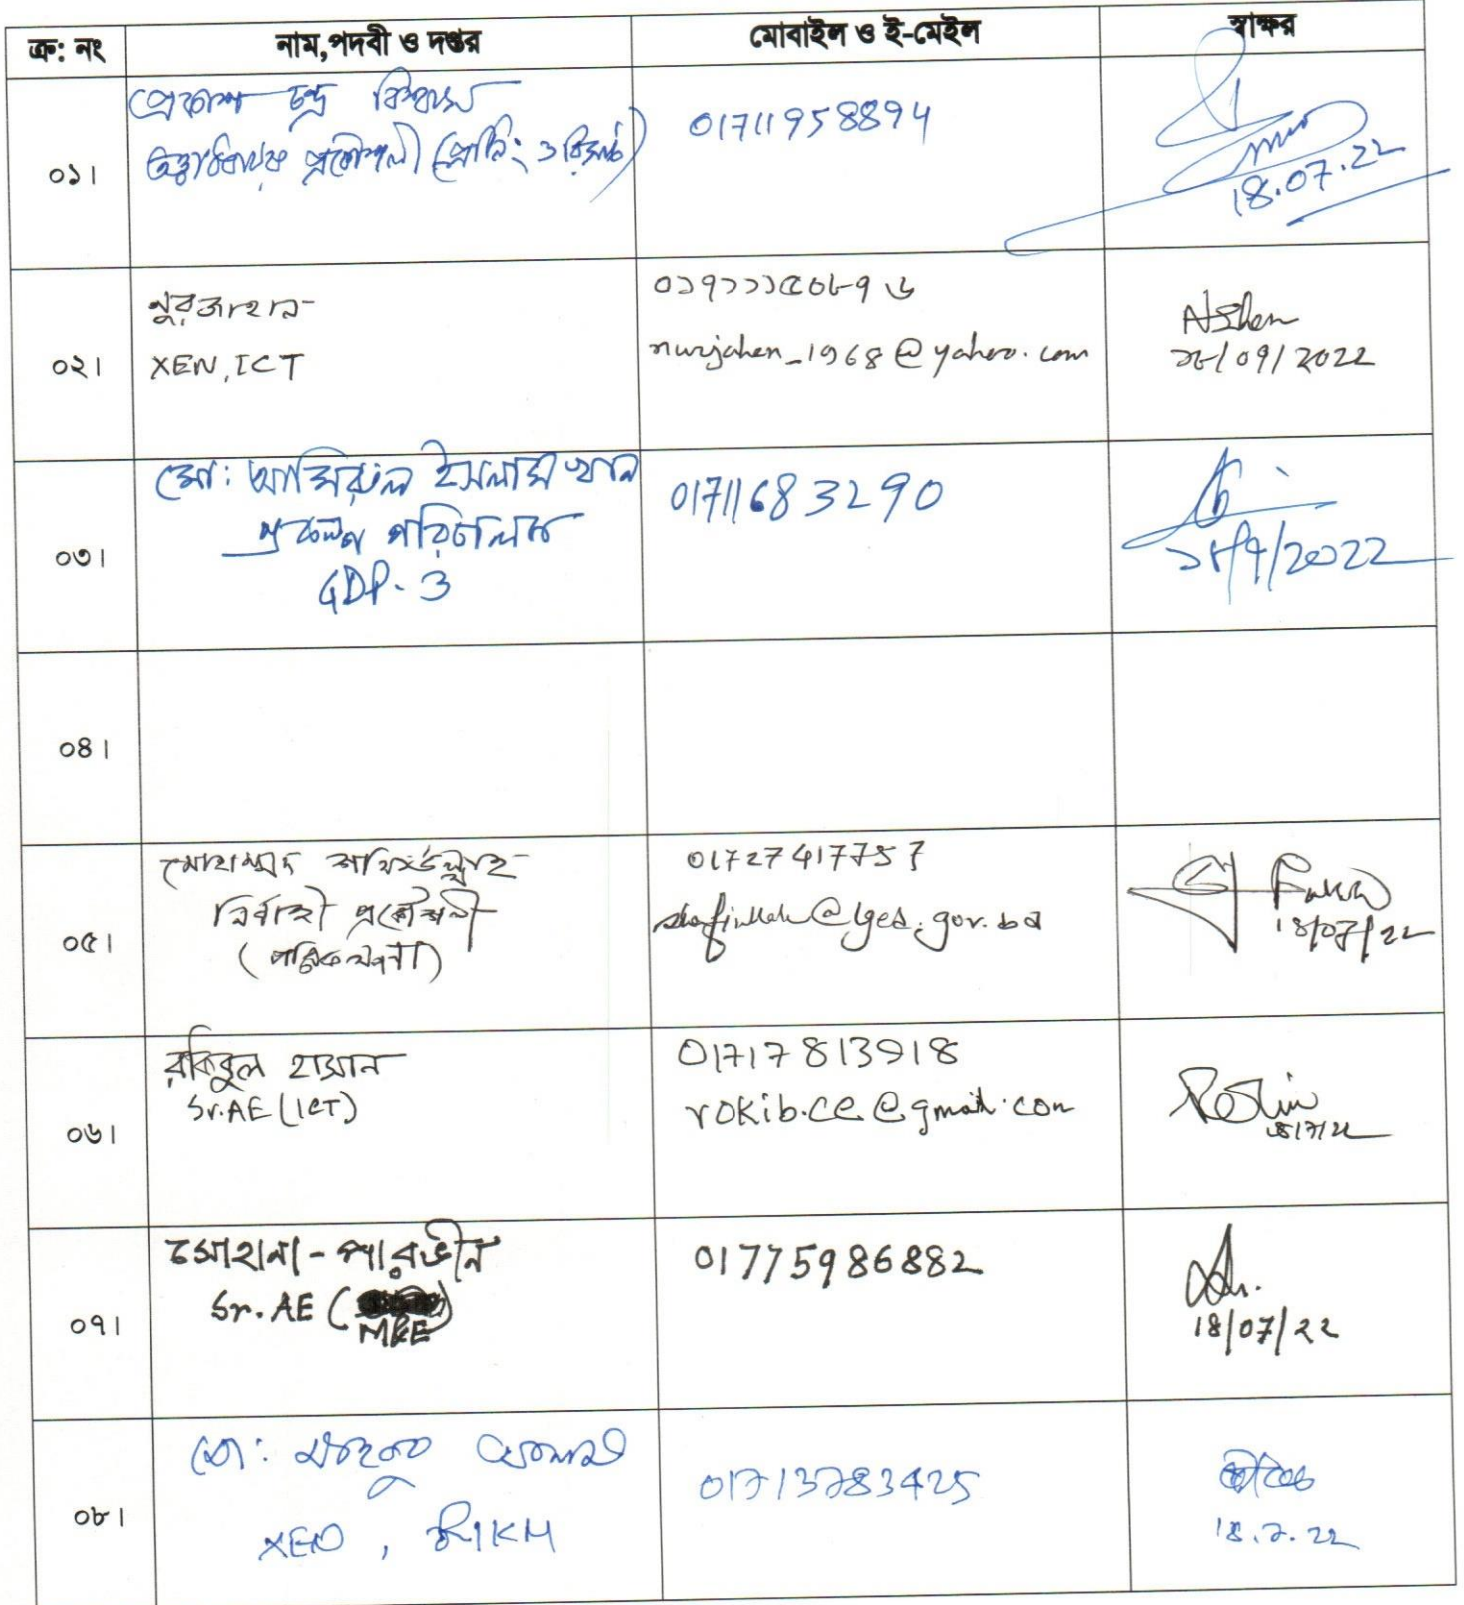 ক্র: নং নাম,পদবী ও দপ্তর মোবাইল ও ই-মেইল স্বাক্ষর
০১। প্রকাশ চন্দ্র বিশ্বাস
তত্ত্বাবধায়ক প্রকৌশলী (প্লানিং ও ডিজাইন)
01711958894
18.07.22
০২। নুরজাহান
XEN, ICT
০১৭১১১৫০৮৭৬
nurjahen_1968@yahoo.com
১৮/০৭/2022
০৩। মো: আমিরুল ইসলাম খান
প্রকল্প পরিচালক
GDP-3
01711683290
১৮/৭/2022
০৪।
০৫। মোহাম্মদ শফিউল্লাহ
নির্বাহী প্রকৌশলী
(পরিকল্পনা)
01727417757
shafiullah@lged.gov.bd
18/07/22
০৬। রকিবুল হাসান
Sr.AE (ICT)
01717813918
rokib.ce@gmail.com
18/7/22
০৭। সোহানা-পারভীন
Sr.AE (M&E)
01775986882
18/07/22
০৮। মো:
XEN,
01713783425
18.7.22